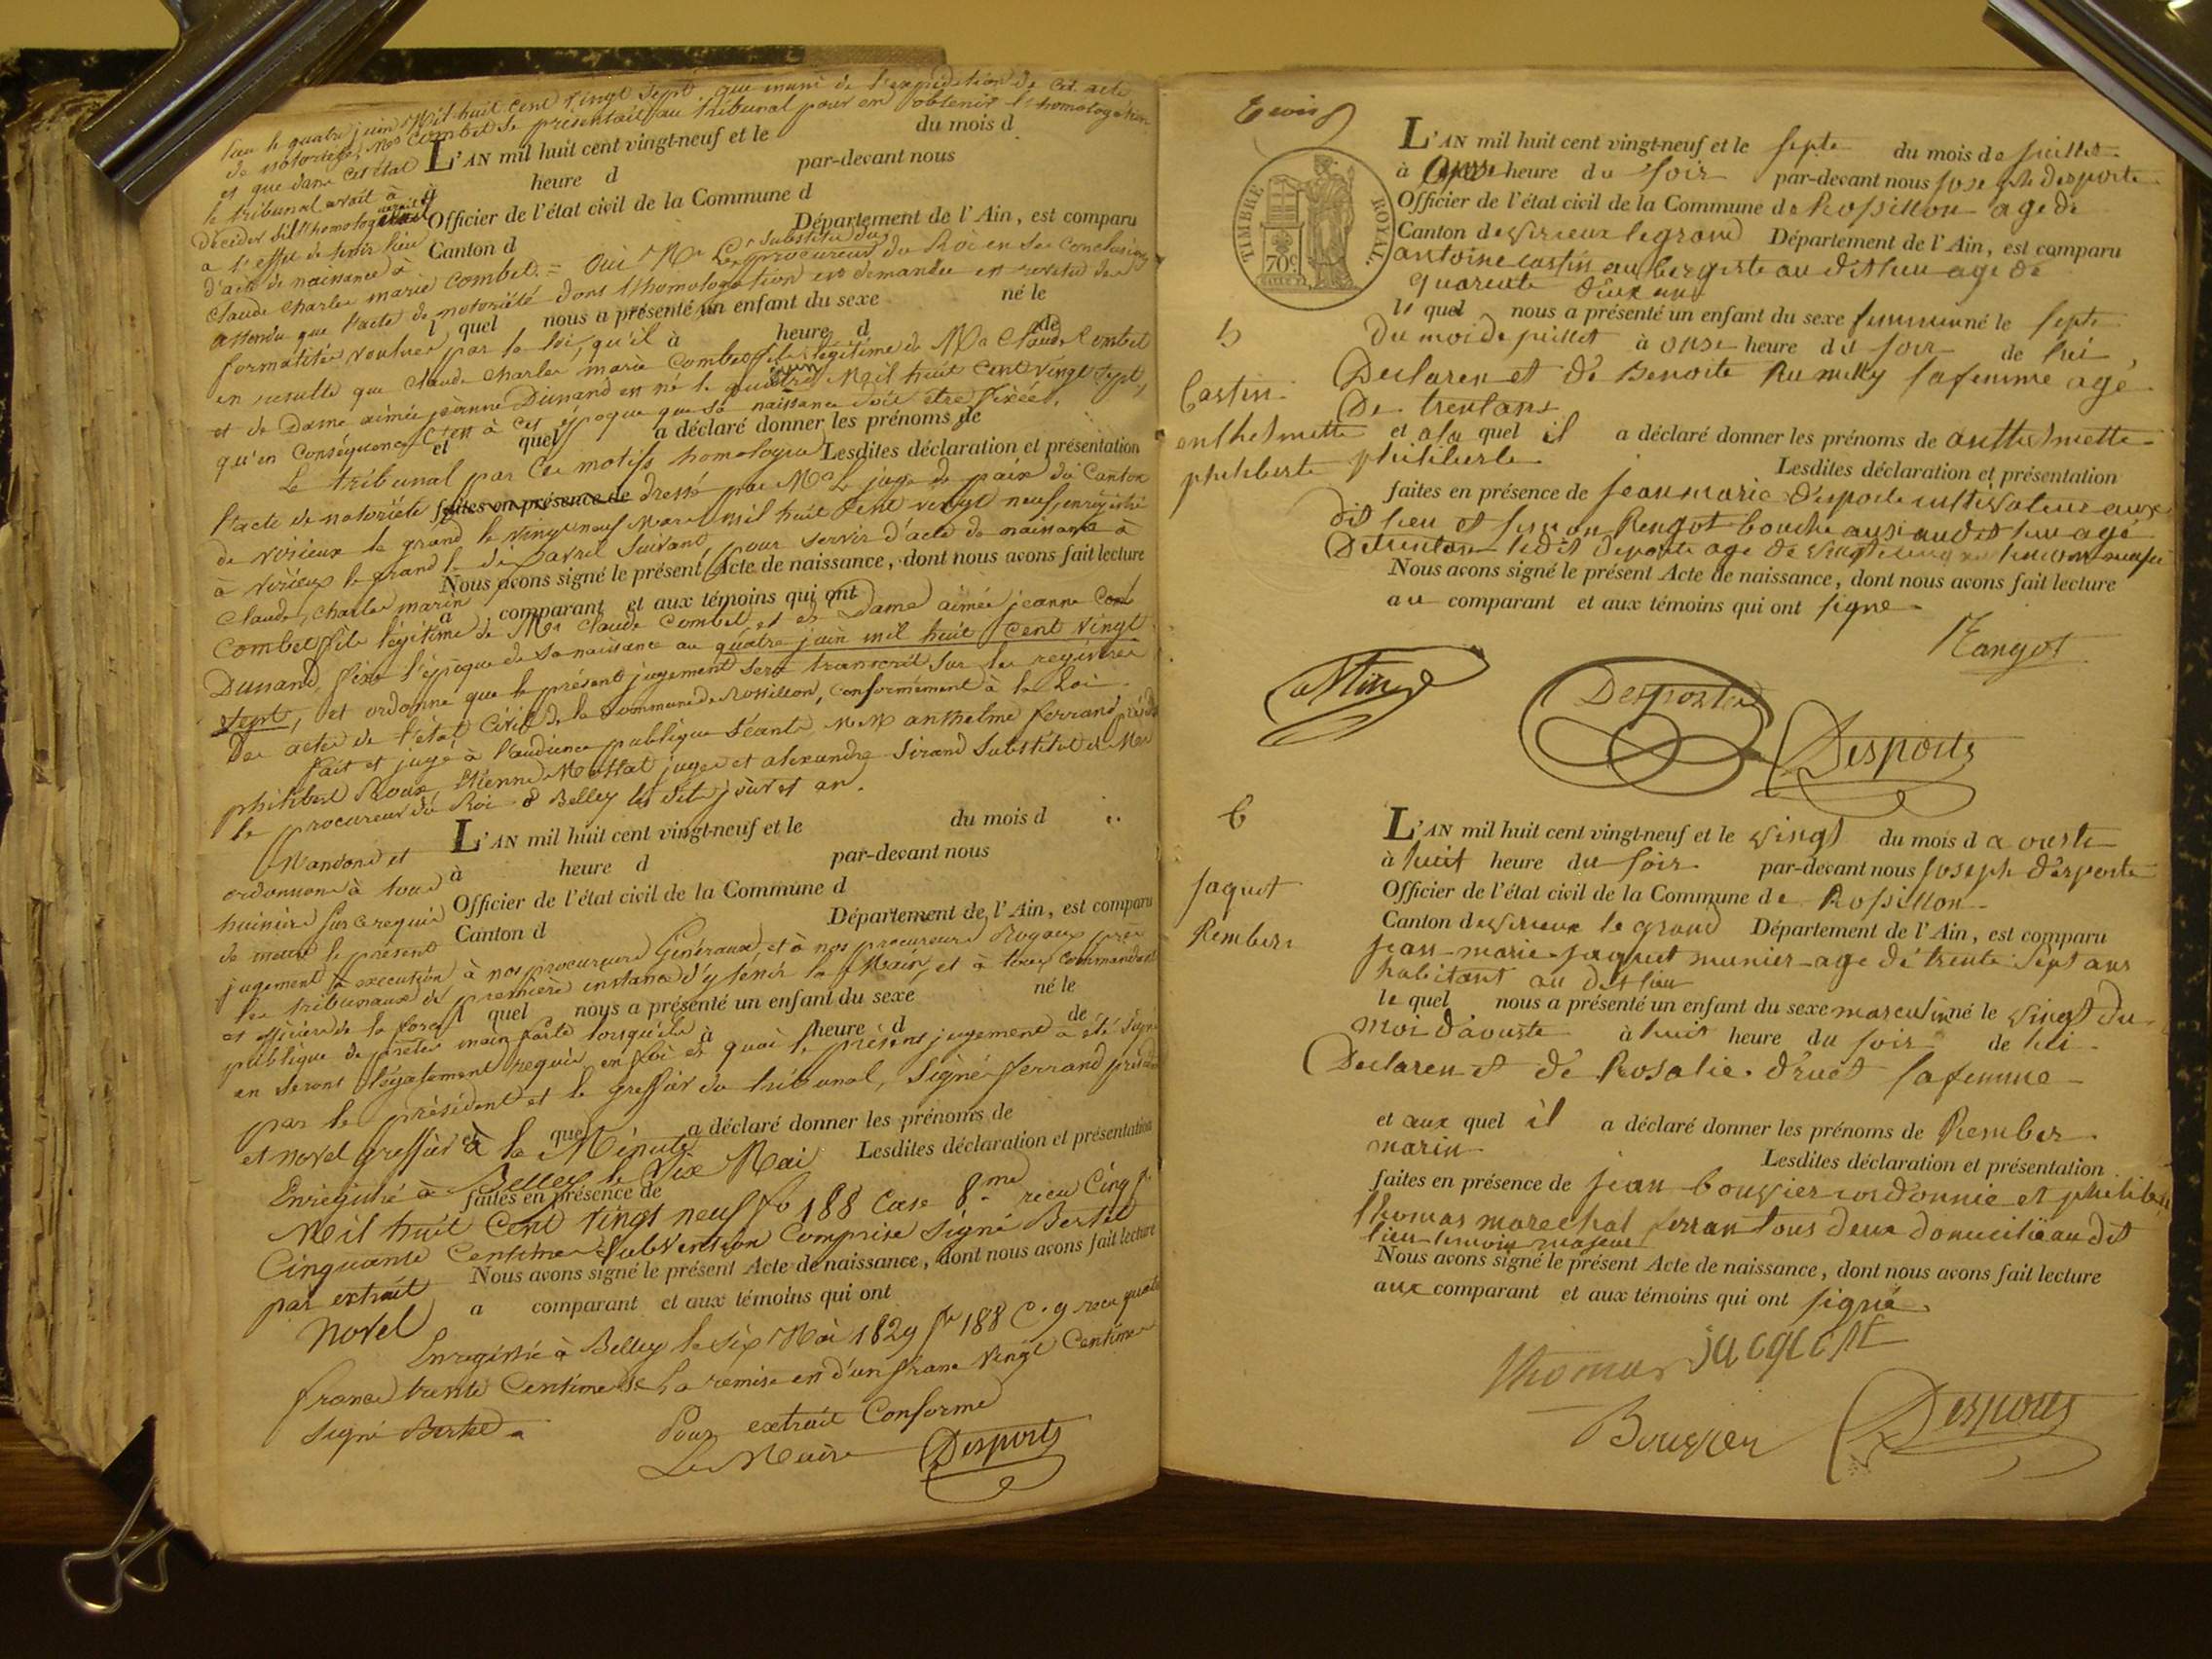 l'an le quatre juin Mil huit cent vingt sept. que muni de l'expédition de cet acte
de notoriété, Mr Combet se présentait au tribunal pour en obtenir l'homologation
et que dans cet état
L'AN mil huit cent vingt-neuf et le du mois d
le tribunal avait à
à heure d par-devant nous
décider s'il l'homologuerait
Officier de l'état civil de la Commune d
a l'effet de tenir lieu
Canton d Département de l'Ain, est comparu
d'acte de naissance à
Claude Charles marie Combet. = Oui Mr Le substitut du procureur du Roi en ses conclusions
attendu que l'acte de notoriété dont l'homologation est demandée est revêtu des
l quel nous a présenté un enfant du sexe né le
formalités voulues par la loi, qu'il
à heure d de
en résulte que Claude Charles marie Combet fils légitime de Mr Claude Combet
et de Dame aimée jeanne Dunand est né le quatre juin Mil huit cent vingt sept,
qu'en conséquence c'est à cet époque que sa naissance doit être fixée.
et quel a déclaré donner les prénoms de
Le tribunal par ces motifs homologue
Lesdites déclaration et présentation
l'acte de notoriété faites en présence de dressé par Mr Le juge de paix du Canton
de virieux le grand le vingt neuf Mars mil huit cent vingt neuf, enregistré
à virieux le grand le dix avril suivant, pour servir d'acte de naissance à
Nous avons signé le présent Acte de naissance, dont nous avons fait lecture
Claude, Charles marin
a comparant et aux témoins qui ont
Combet fils légitime de Mr Claude Combet et de Dame aimée jeanne
Dunand, fixe l'époque de sa naissance au quatre juin mil huit cent vingt
sept, et ordonne que le présent jugement sera transcrit sur les registres
des actes de l'état civil de la Commune de Rossillon, conformément à la Loi.
fait et jugé à l'audience publique séants MM anthelme ferrand, président
philibert Roux, Etienne juges et alexandre Sirand Substitut de Mr
le procureur du Roi à Belley les dits jour et an.
L'AN mil huit cent vingt-neuf et le du mois d
Mandons et
à heure d par-devant nous
ordonnons à tous
Officier de l'état civil de la Commune d
huissiers sur ce requis
Canton d Département de l'Ain, est comparu
de mettre le présent
jugement à exécution à nos procureurs Généraux, et à nos procureurs Royaux près
les tribunaux de première instance d'y tenir la Main, et à tous commandants
l quel nous a présenté un enfant du sexe né le
et officiers de la force
publique de prêter main forte lorsqu'ils
à heure d de
en seront légalement requis en foi de quoi le présent jugement a été signé
par le président et le greffier du tribunal, signé ferrand président
et quel a déclaré donner les prénoms de
et novel greffier à la Minute.
Lesdites déclaration et présentation
Enregistré à Belley le six Mai
faites en présence de
Mil huit cent vingt neuf fo 188 Case 8.me reçu Cinq f.
Cinquante Centimes Subvention Comprise Signé Bertet
Nous avons signé le présent Acte de naissance, dont nous avons fait lecture
par extrait
a comparant et aux témoins qui ont
Novel
Enregistré à Belley le six Mai 1829 fo 188 C. 9 reçu quatre
francs trente Centimes La remise est d'un franc vingt Centimes
Signé
Pour extrait Conforme
Le Maire Desports
TIMBRE ROYAL.
70c
L'AN mil huit cent vingt-neuf et le septe du mois de juillet
à onze heure du soir par-devant nous josephe desporte
Officier de l'état civil de la Commune de Rossillon age de
Canton de virieux le grand Département de l'Ain, est comparu
antoine castin aubergiste au dit lieu age de
quarente deux ans
le quel nous a présenté un enfant du sexe femminin né le septe
du moi de juillet à onse heure du soir de lui
5
Castin
anthelmette
philiberte
Declaren et de Benoite Rumilly sa femme agé
De trentans
et ala quel il a déclaré donner les prénoms de anthelmette
philiberte
Lesdites déclaration et présentation
faites en présence de jean marie desporte cultivateur aux
dit lieu et Rengot bouché aussi audit lieu agé
De trentans ledit deporte age de
Nous avons signé le présent Acte de naissance, dont nous avons fait lecture
au comparant et aux témoins qui ont signe
Rangot
Desportes
Desports
6
jaquet
Rembert
L'AN mil huit cent vingt-neuf et le vingt du mois d aouste
à huit heure du soir par-devant nous joseph desporte
Officier de l'état civil de la Commune de Rossillon
Canton de virieux le grand Département de l'Ain, est comparu
jean-marie jaquet munier age de trente sept ans
habitant au dit lieu
le quel nous a présenté un enfant du sexe masculin né le vingt du
moi d'aouste à huit heure du soir de lui
Declaren et de Rosalie druet sa femme
et aux quel il a déclaré donner les prénoms de Rember
marin
Lesdites déclaration et présentation
faites en présence de jean bouvier cordonnie et philibert
thomas marechal ferran tous deux domicilié au dit
lieu temoin majeur
Nous avons signé le présent Acte de naissance, dont nous avons fait lecture
aux comparant et aux témoins qui ont signé
thomas jacquet
Bouvier Desports